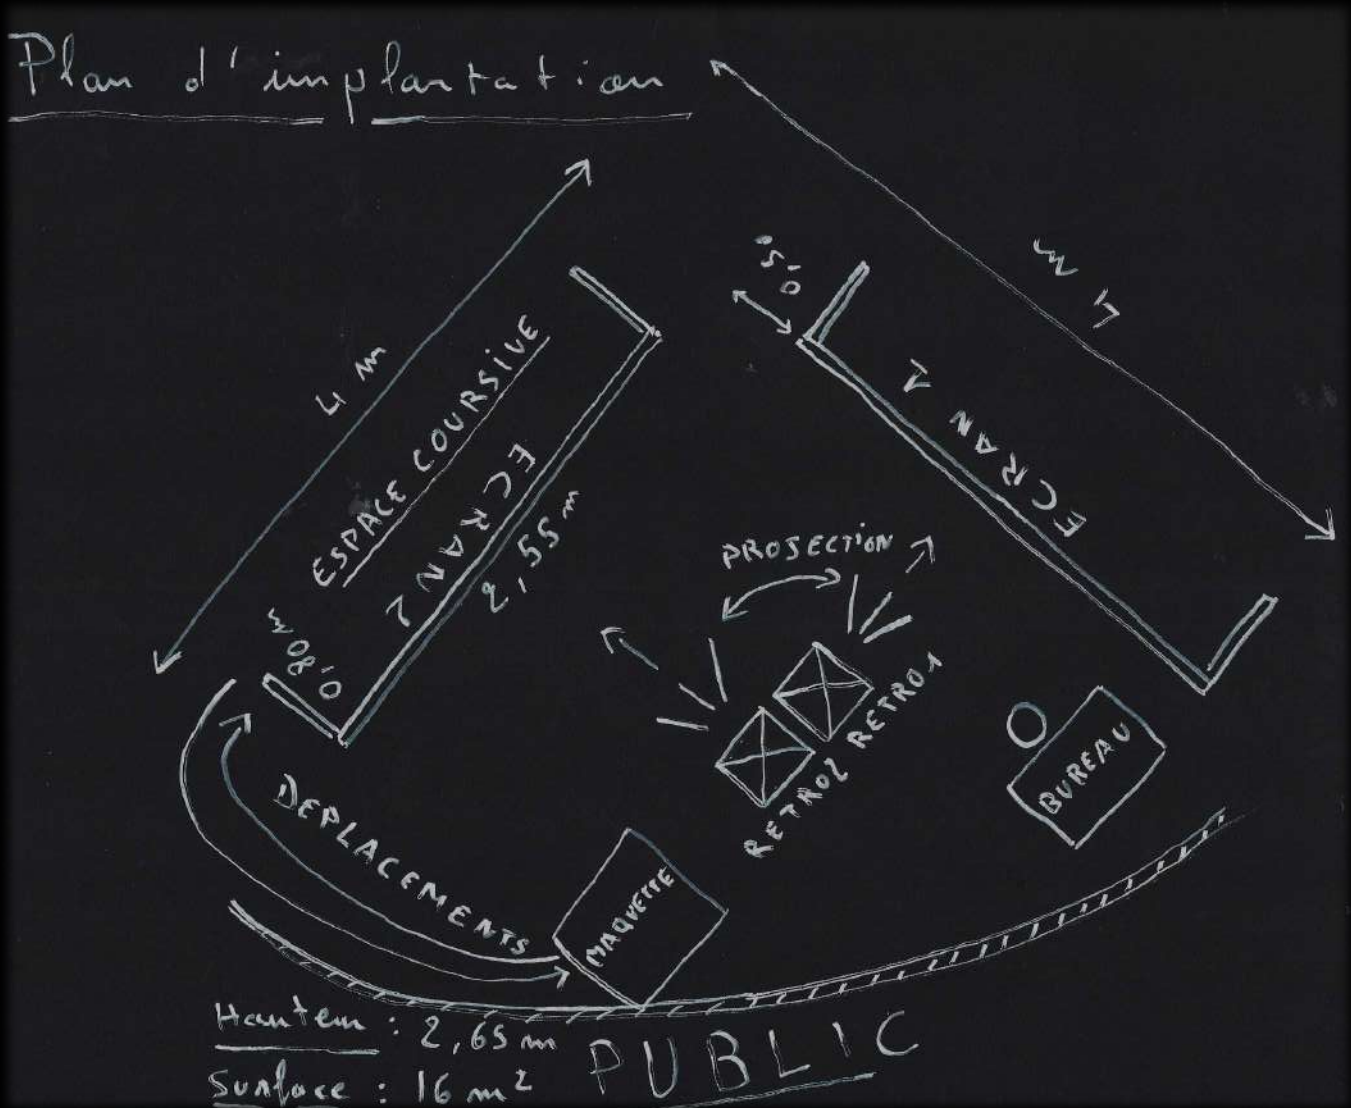 Plan d'implantation
4 m
0,5
4 m
ESPACE COURSIVE
ECRAN 2
2,55 m
0,80 m
ECRAN 1
PROJECTION
RETRO 1
RETRO 2
BUREAU
DEPLACEMENTS
MAQUETTE
Hauteur : 2,65 m
PUBLIC
Surface : 16 m²